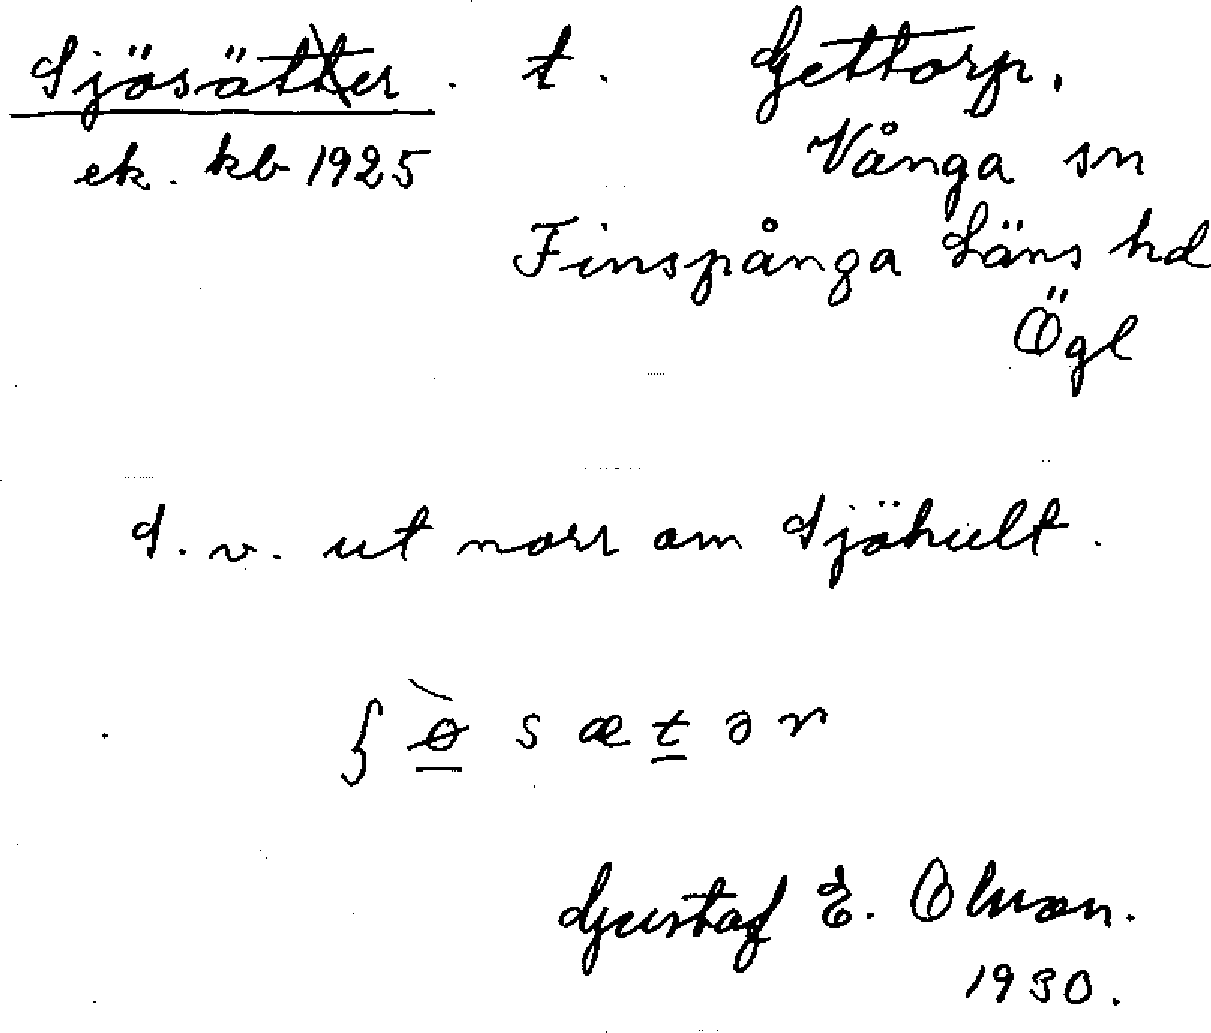 Sjösätter. t. Gettorp,
ek. kb 1925 Vånga sn
Finspånga Läns hd
Ögl
S. v. ut norr om Sjöhult.
ʃø̀sætər
Gustaf E. Olsson.
1930.